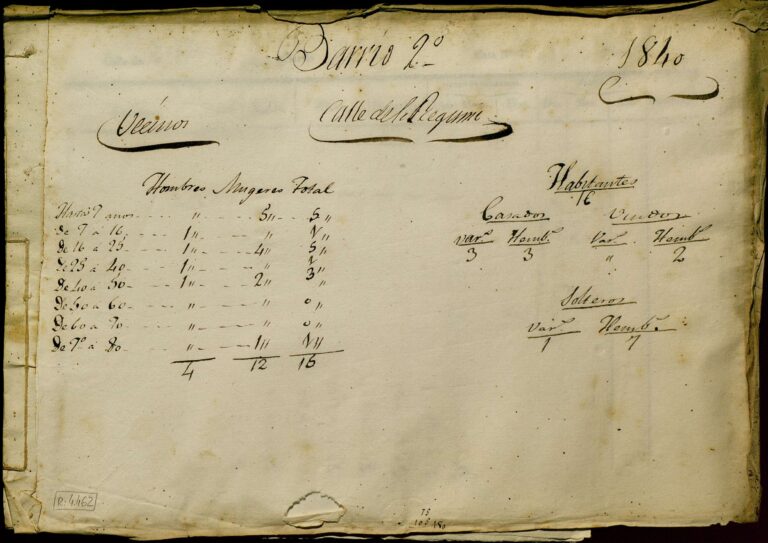 Barrio 2º 1840
Vecinos Calle de la Regume
Hombres Mugeres Total
Hasta 7 años " 5" 5"
de 7 a 16 1" " 1"
de 16 a 25 " 4" 5"
de 25 a 40 1" " 1
de 40 a 50 1" 2" 3"
De 50 a 60 " " 0"
De 60 a 70 " " 0"
De 70 a 80 " 1" 1"
4 12 16
Habitantes
16
Casados Viudos
var.s Hemb.s Var.s Hemb.s
3 3 " 2
Solteros
Var.s Hemb.s
1 7
R. 4.462